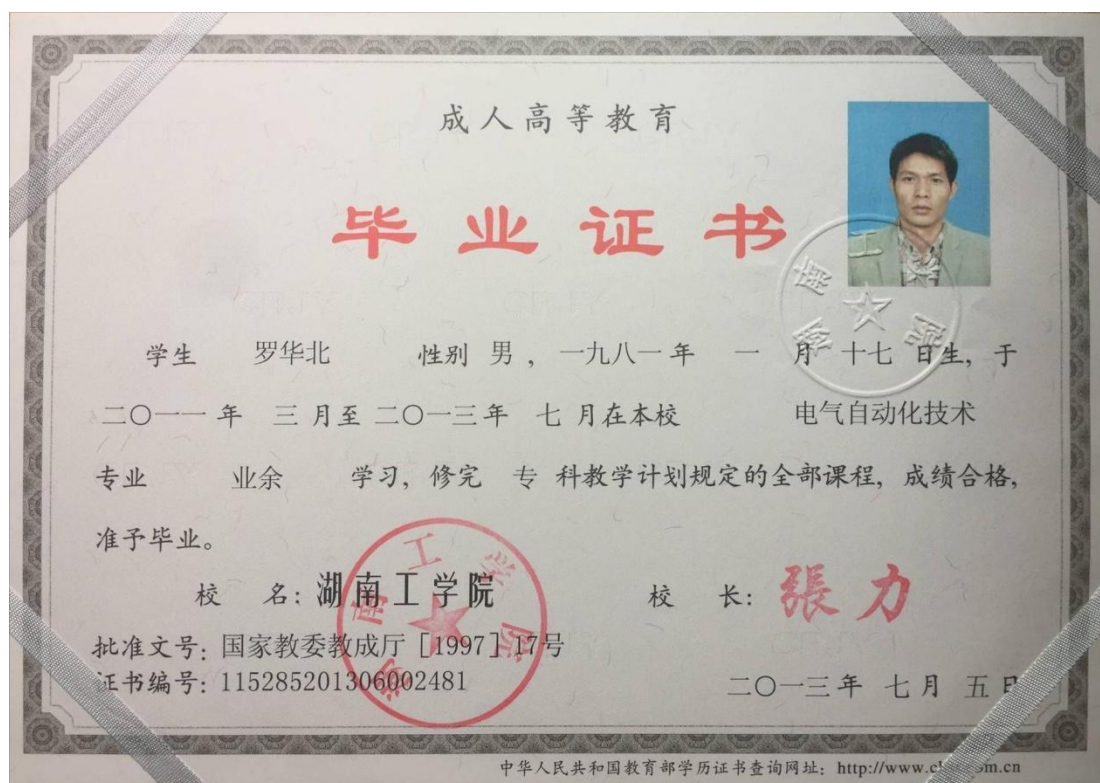 成人高等教育
毕业证书
学生 罗华北 性别 男，一九八一年 一 月 十七 日生，于
二〇一一 年 三 月至 二〇一三 年 七 月在本校 电气自动化技术
专业 业余 学习，修完 专 科教学计划规定的全部课程，成绩合格，
准予毕业。
校 名：湖南工学院 校 长：張力
批准文号：国家教委教成厅［1997］17号
证书编号：115285201306002481 二〇一三年 七月 五日
中华人民共和国教育部学历证书查询网址：http://www.
湖南工学院
湖南工学院